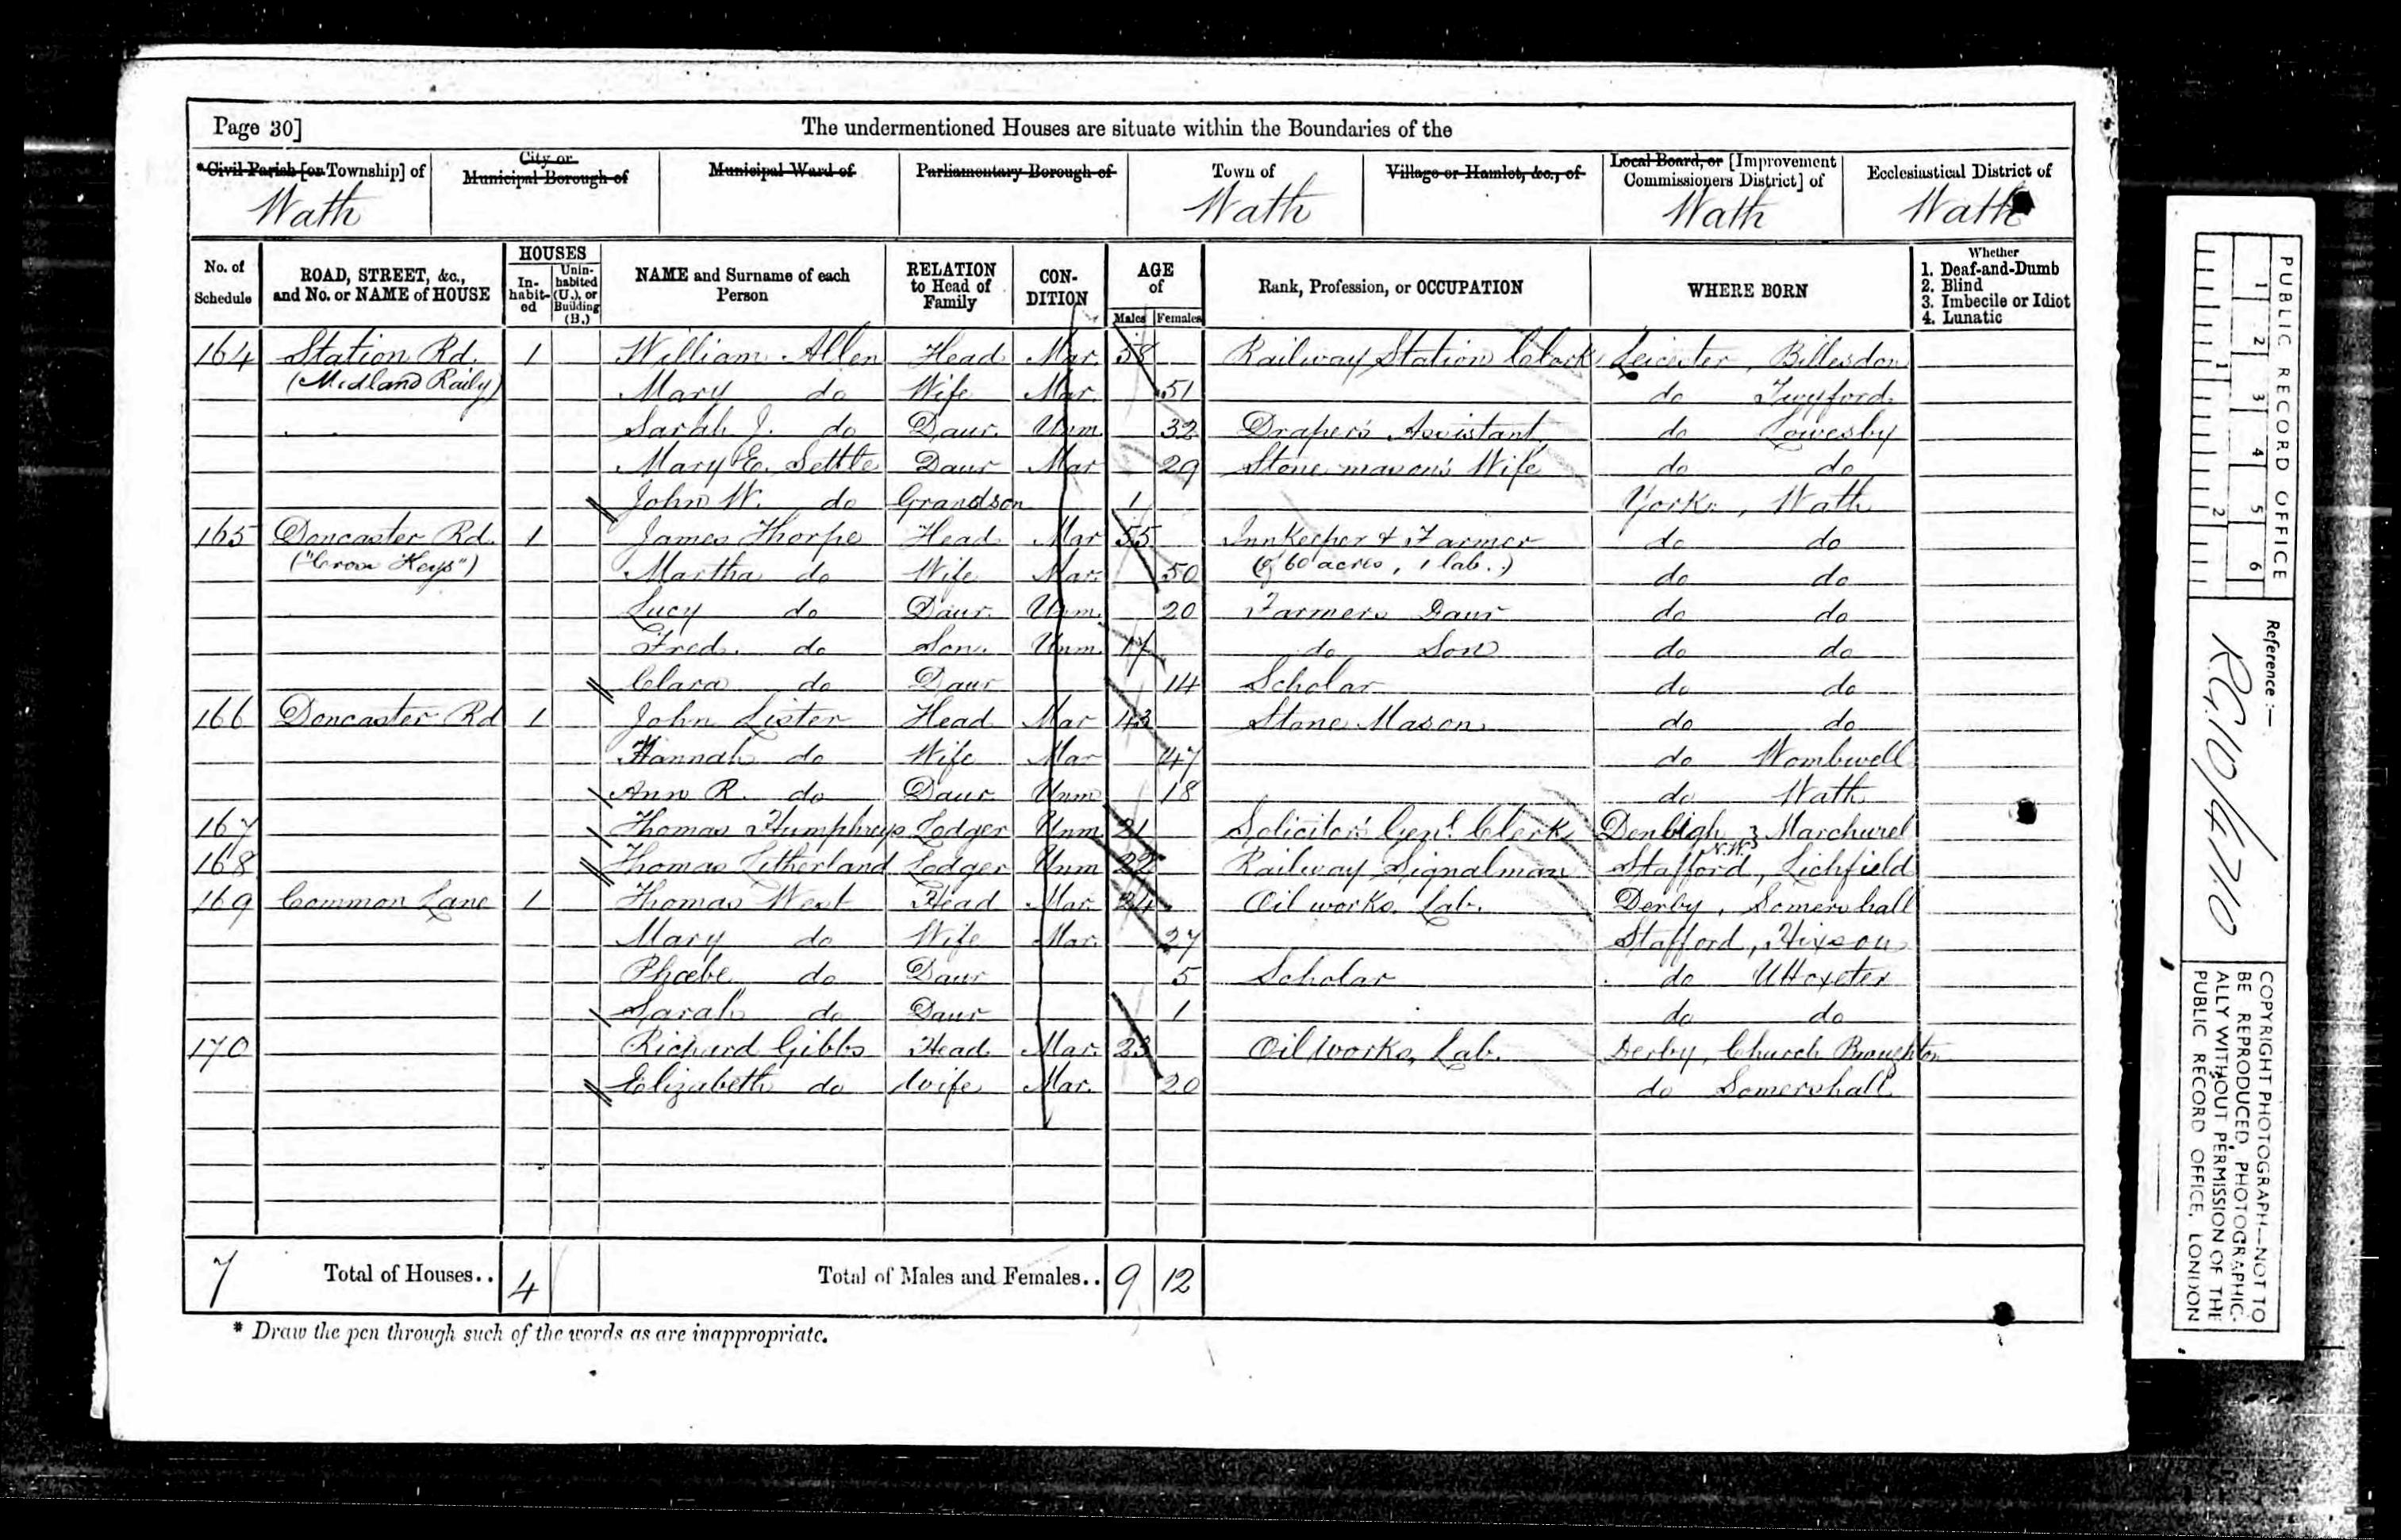 Page 30]
The undermentioned Houses are situate within the Boundaries of the
*Civil Parish [or Township] of
City or Municipal Borough of
Municipal Ward of
Parliamentary Borough of
Town of
Village or Hamlet, &c., of
Local Board, or [Improvement Commissioners District] of
Ecclesiastical District of
Wath Wath Wath Wath
No. of Schedule
ROAD, STREET, &c., and No. or NAME of HOUSE
HOUSES
In-habit-ed
Unin-habited (U.), or Building (B.)
NAME and Surname of each Person
RELATION to Head of Family
CON-DITION
AGE of
Males Females
Rank, Profession, or OCCUPATION
WHERE BORN
Whether
1. Deaf-and-Dumb
2. Blind
3. Imbecile or Idiot
4. Lunatic
164 Station Rd. 1 William Allen Head Mar. 58 Railway Station Clerk Leicester, Billesdon
(Midland Raily) Mary do Wife Mar. 51 do Twyford
Sarah J. do Daur. Unm. 32 Drapers Assistant do Lowesby
Mary E. Settle Daur Mar 29 Stone mason's Wife do do
John W. do Grandson 1 Yorks, Wath
165 Doncaster Rd. 1 James Thorpe Head Mar 55 Innkeeper & Farmer do do
("Cross Keys") Martha do Wife Mar. 50 (of 60 acres, 1 lab.) do do
Lucy do Daur. Unm. 20 Farmers Daur do do
Fred. do Son. Unm. 17 do Son do do
Clara do Daur 14 Scholar do do
166 Doncaster Rd 1 John Lister Head Mar 43 Stone Mason do do
Hannah do Wife Mar 47 do Wombwell
Ann R. do Daur. Unm 18 do Wath
167 Thomas Humphreys Lodger Unm. 21 Solicitor's Genl. Clerk Denbigh N.W.
168 Thomas Litherland Lodger Unm 22 Railway Signalman Stafford, Lichfield
169 Common Lane 1 Thomas West Head Mar. 24 Oil works. Lab. Derby, Somershall
Mary do Wife Mar. 27 Stafford, Hixson
Phœbe do Daur 5 Scholar do Uttoxeter
Sarah do Daur 1 do do
170 Richard Gibbs Head Mar. 23 Oil Works, Lab. Derby, Church Broughton
Elizabeth do Wife Mar. 20 do Somershall
7 Total of Houses.. 4 Total of Males and Females.. 9 12
* Draw the pen through such of the words as are inappropriate.
PUBLIC RECORD OFFICE
1 2 3 4 5 6
1 2
Reference :—
R.G. 10/4710
COPYRIGHT PHOTOGRAPH—NOT TO
BE REPRODUCED PHOTOGRAPHIC-
ALLY WITHOUT PERMISSION OF THE
PUBLIC RECORD OFFICE, LONDON